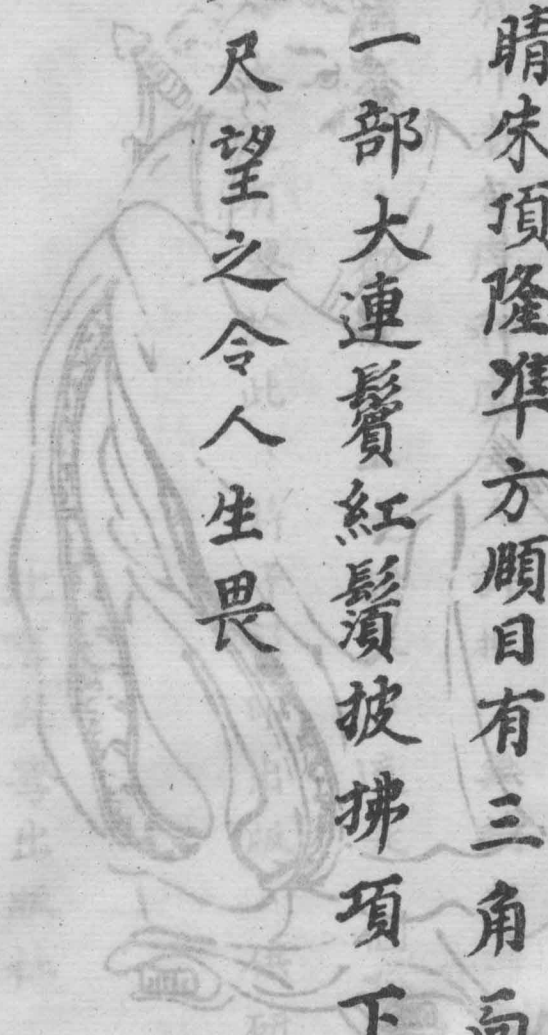 睛朱頂隆準方頤目有三角面
一部大連鬢紅鬚披拂項下
尺望之令人生畏